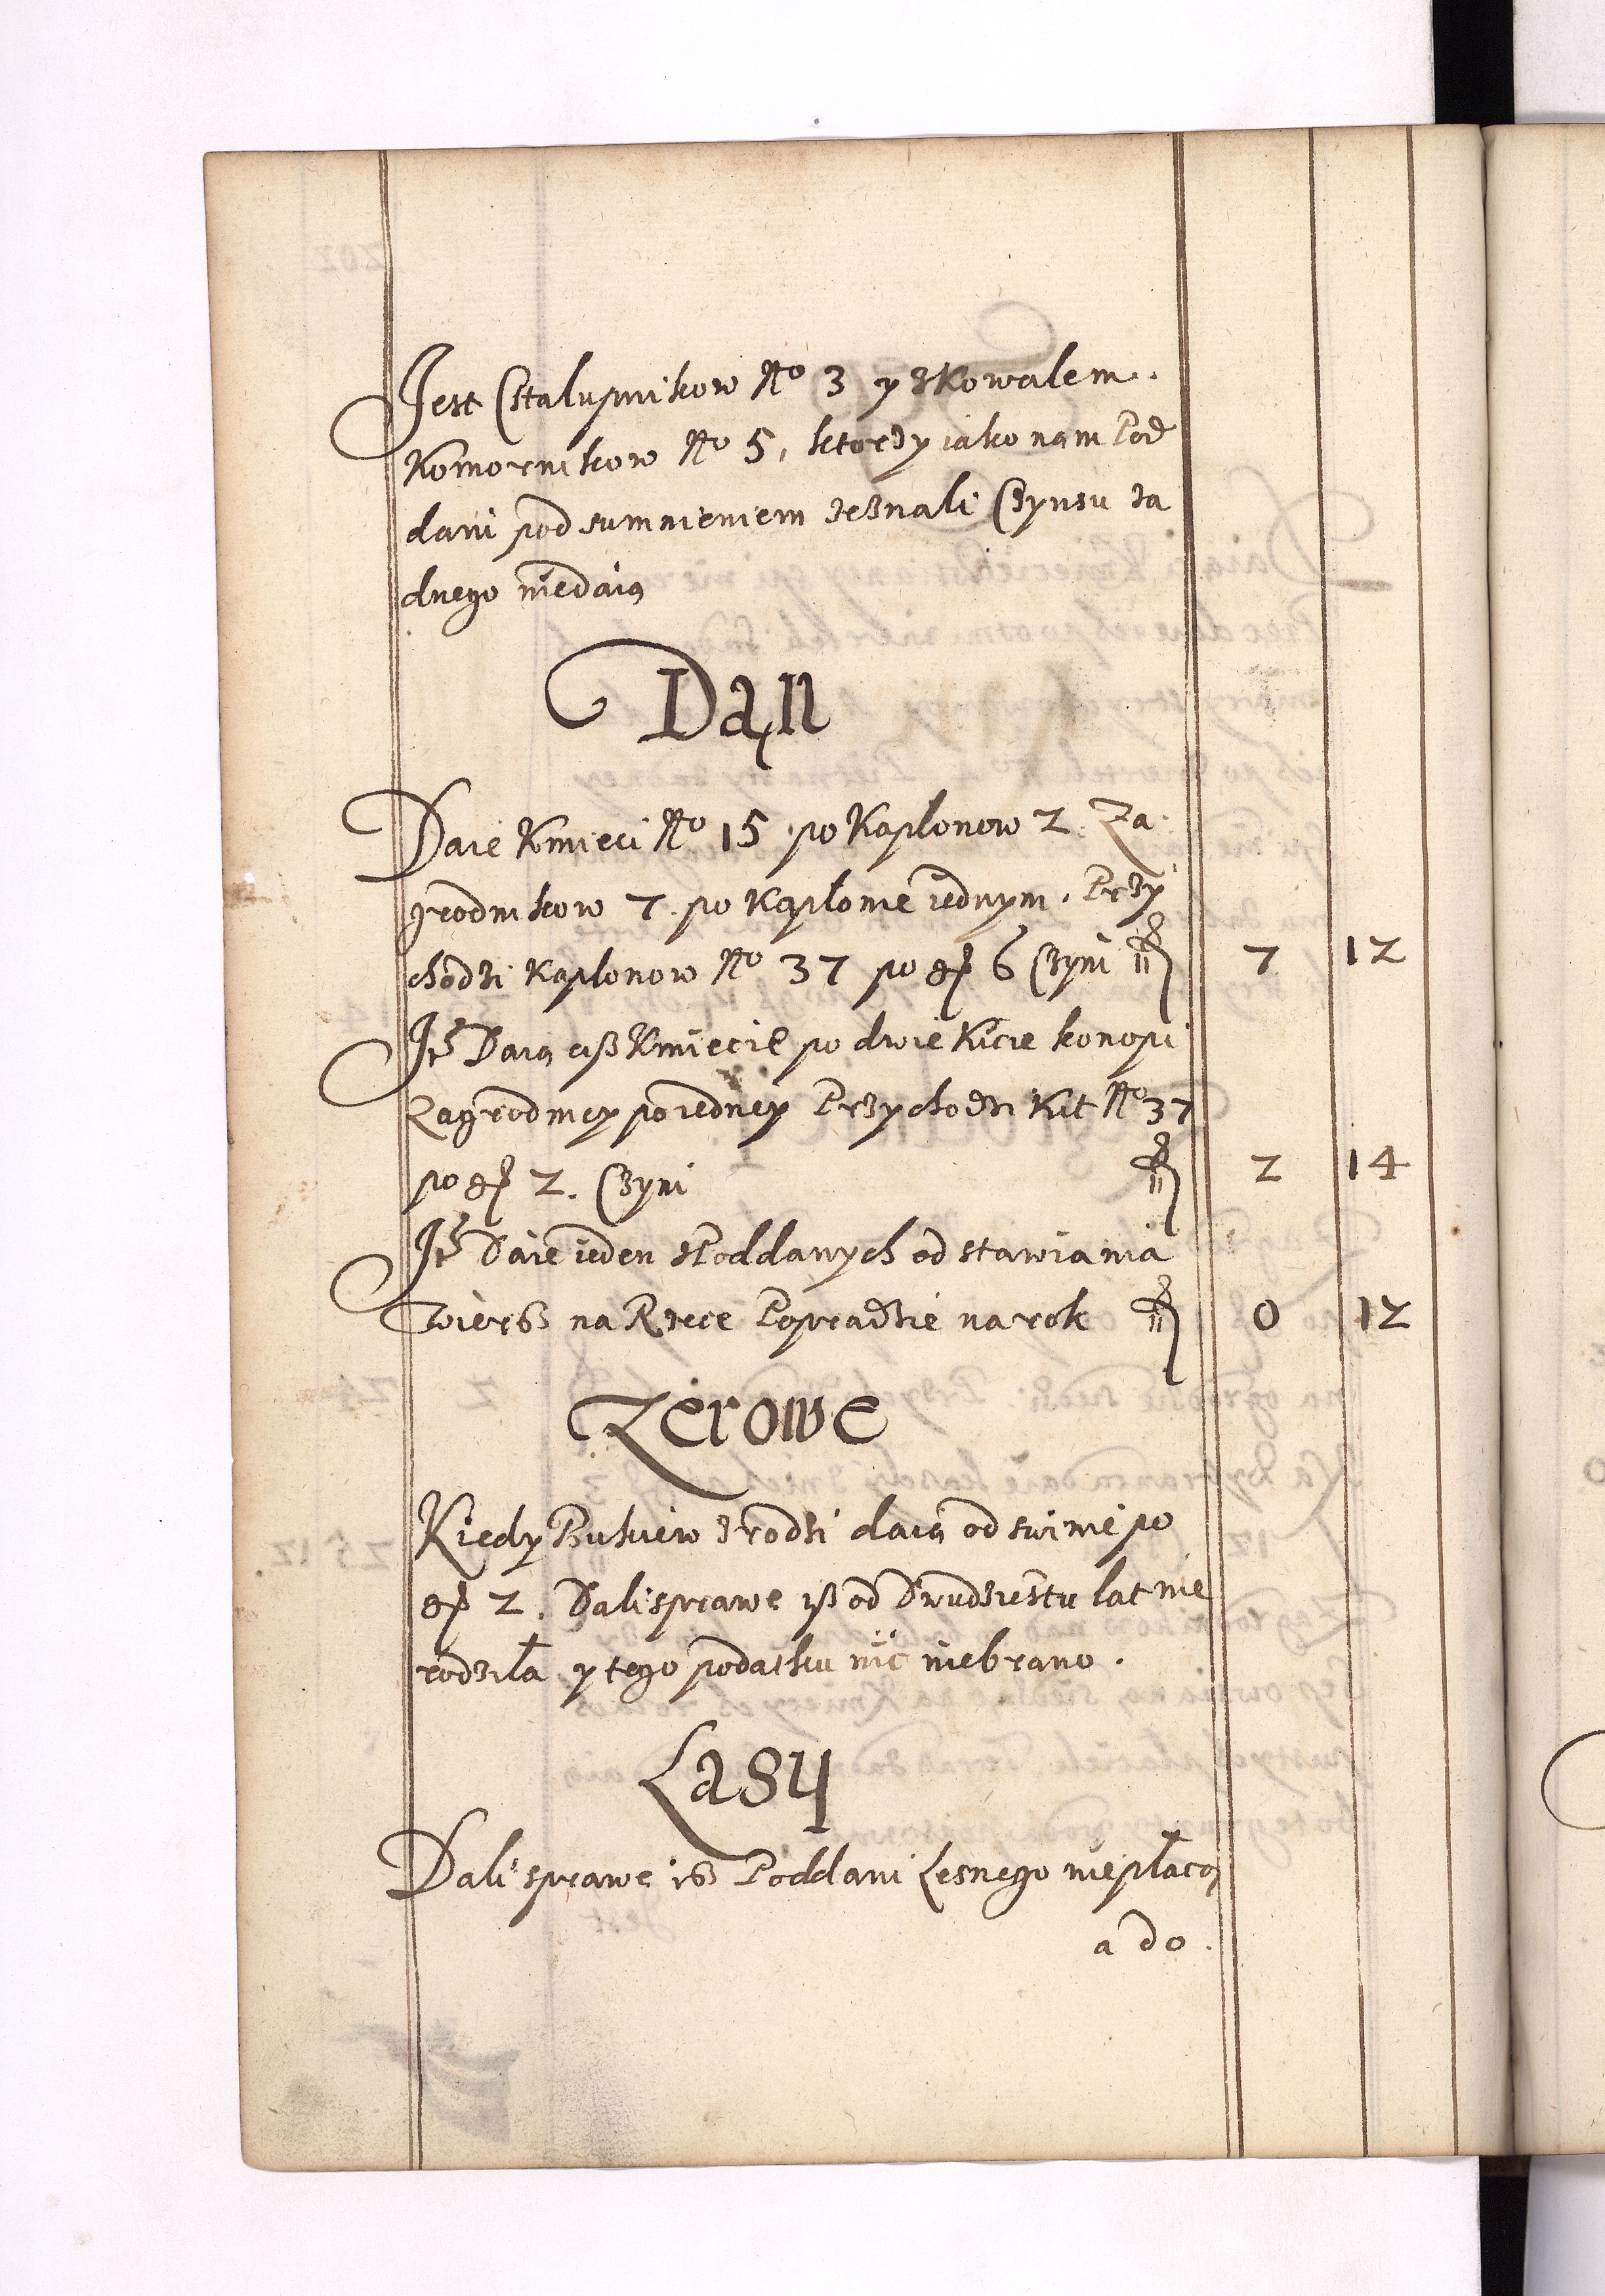 Jest Chalupnikow No 3 y zkowalem.
Komornikow No 5, ktorzy iako nam Pod
dani pod sumnieniem zeznali Czynsu za
dnego niedaią
Dąn
Daie Kmieci No 15 po Kapłonow 2. Za
grodnikow 7. po Kapłonie iednym. Przy
chodzi Kapłonow No 37 po gr 6 Czyni fl 7 12
Ite Daią ciż Kmiecie po dwie Kicie konopi
Zagrodnicy poiedney Przychodzi Kit No 37
po gr 2. Czyni fl 2 14
Ite Daie ieden zPoddanych od stawiania
Wierß na Rzece Popradzie na rok fl 0 12
Zerowe
Kiedy Bukiew zrodzi daią od swinie po
gr 2. Dali sprawe iß od Dwudziestu lat nie
rodziła y tego podatku nic niebrano.
Lasy
Dali sprawe iß Poddani Lesnego niepłacą
a do.